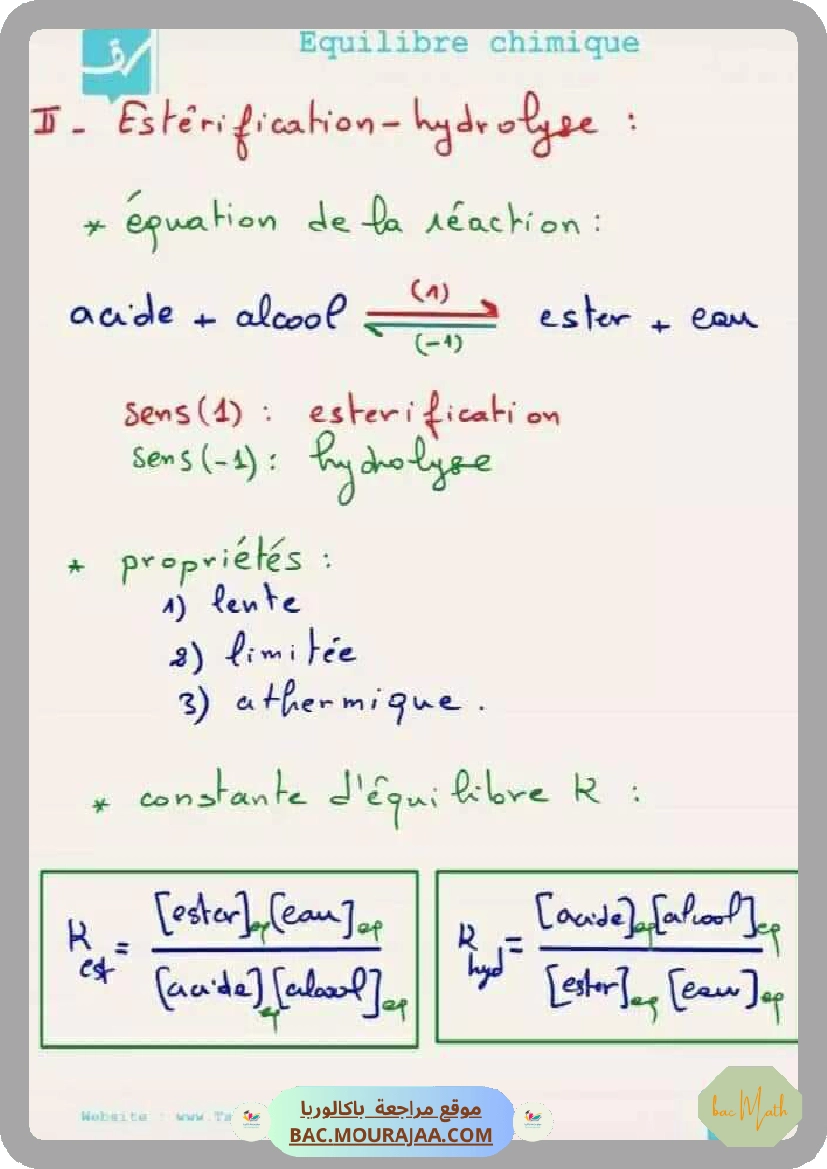 Equilibre chimique
II - Estérification-hydrolyse :
* équation de la réaction :
(1)
acide + alcool ⇌ ester + eau
(-1)
sens(1) : esterification
sens(-1) : hydrolyse
* propriétés :
1) lente
2) limitée
3) athermique.
* constante d'équilibre K :
K_est = [ester]_eq [eau]_eq / [acide]_eq [alcool]_eq
K_hyd = [acide]_eq [alcool]_eq / [ester]_eq [eau]_eq
Website : www.Ta
موقع مراجعة باكالوريا
BAC.MOURAJAA.COM
bac Math